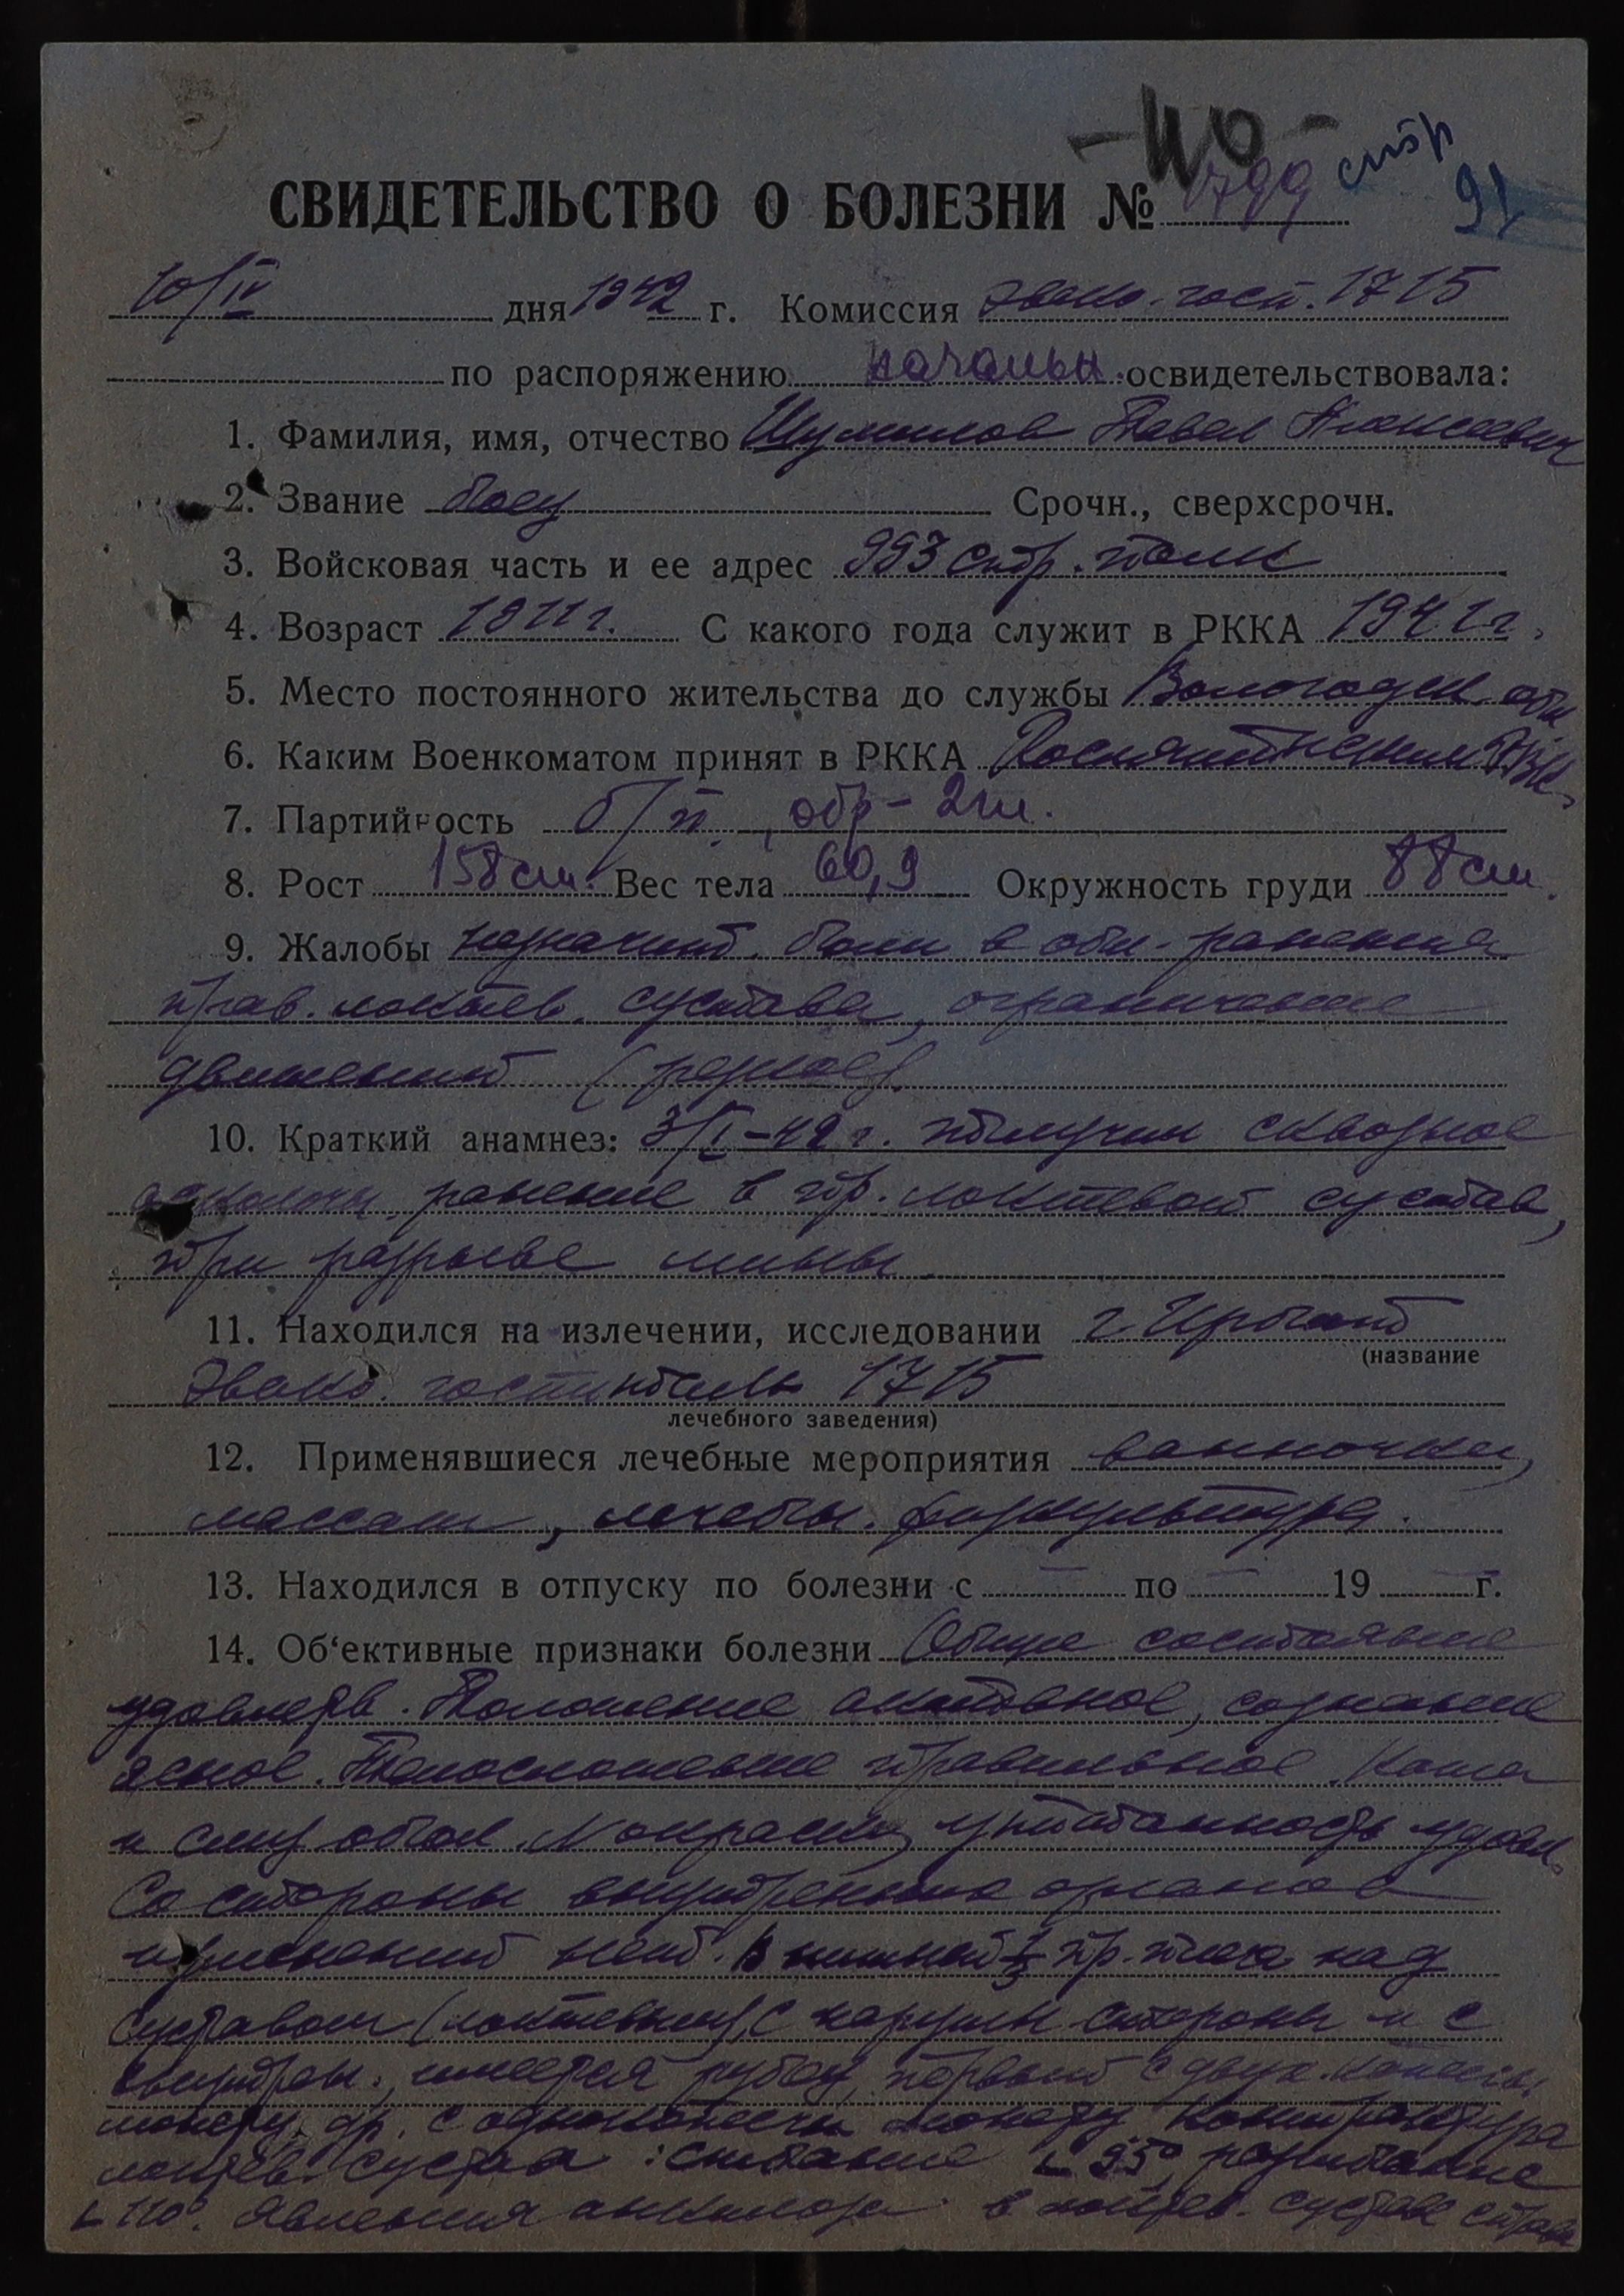 -40-
стр
91
СВИДЕТЕЛЬСТВО О БОЛЕЗНИ № 1799
10/IV дня 1942 г. Комиссия эвако-госп. 1715
по распоряжению начальн. освидетельствовала:
1. Фамилия, имя, отчество Шумилов Павел Алексеевич
2. Звание боец Срочн., сверхсрочн.
3. Войсковая часть и ее адрес 993 стр. полк
4. Возраст 1911 г. С какого года служит в РККА 1941 г.
5. Место постоянного жительства до службы Вологодск. обл
6. Каким Военкоматом принят в РККА РВК.
7. Партийность б/п, обр- 2 кл.
8. Рост 158 см. Вес тела 60,9 Окружность груди 88 см.
9. Жалобы незначит. боли в обл. ранения
прав. локтев. сустава, ограничение
движений (резкое).
10. Краткий анамнез: 3/I-42 г. получил сквозное
осколочн. ранение в пр. локтевой сустав,
при разрыве мины
11. Находился на излечении, исследовании г.
(название
Эвако. госпиталь 1715
лечебного заведения)
12. Применявшиеся лечебные мероприятия ванночки,
массаж, лечебн. физкультура.
13. Находился в отпуску по болезни с — по — 19 — г.
14. Об‘ективные признаки болезни Общее состояние
удовлетв. Положение активное, сознание
ясное. Телосложение правильное. Кожа
и слиз. обол. упитанность удовл.
Со стороны внутренних органов
изменений нет. В нижней 1/3 пр. плеча над
суставом (локтевым) с наружн стороны и с
внутрен. имеется рубец, первый с двух. копееч.
монету, др. с однокопеечн монету Контрактура
локтев. сустава: сгибание ∟ 95°, разгибание
∟ 110°. Явления анкилоза в локтев. суставе справа